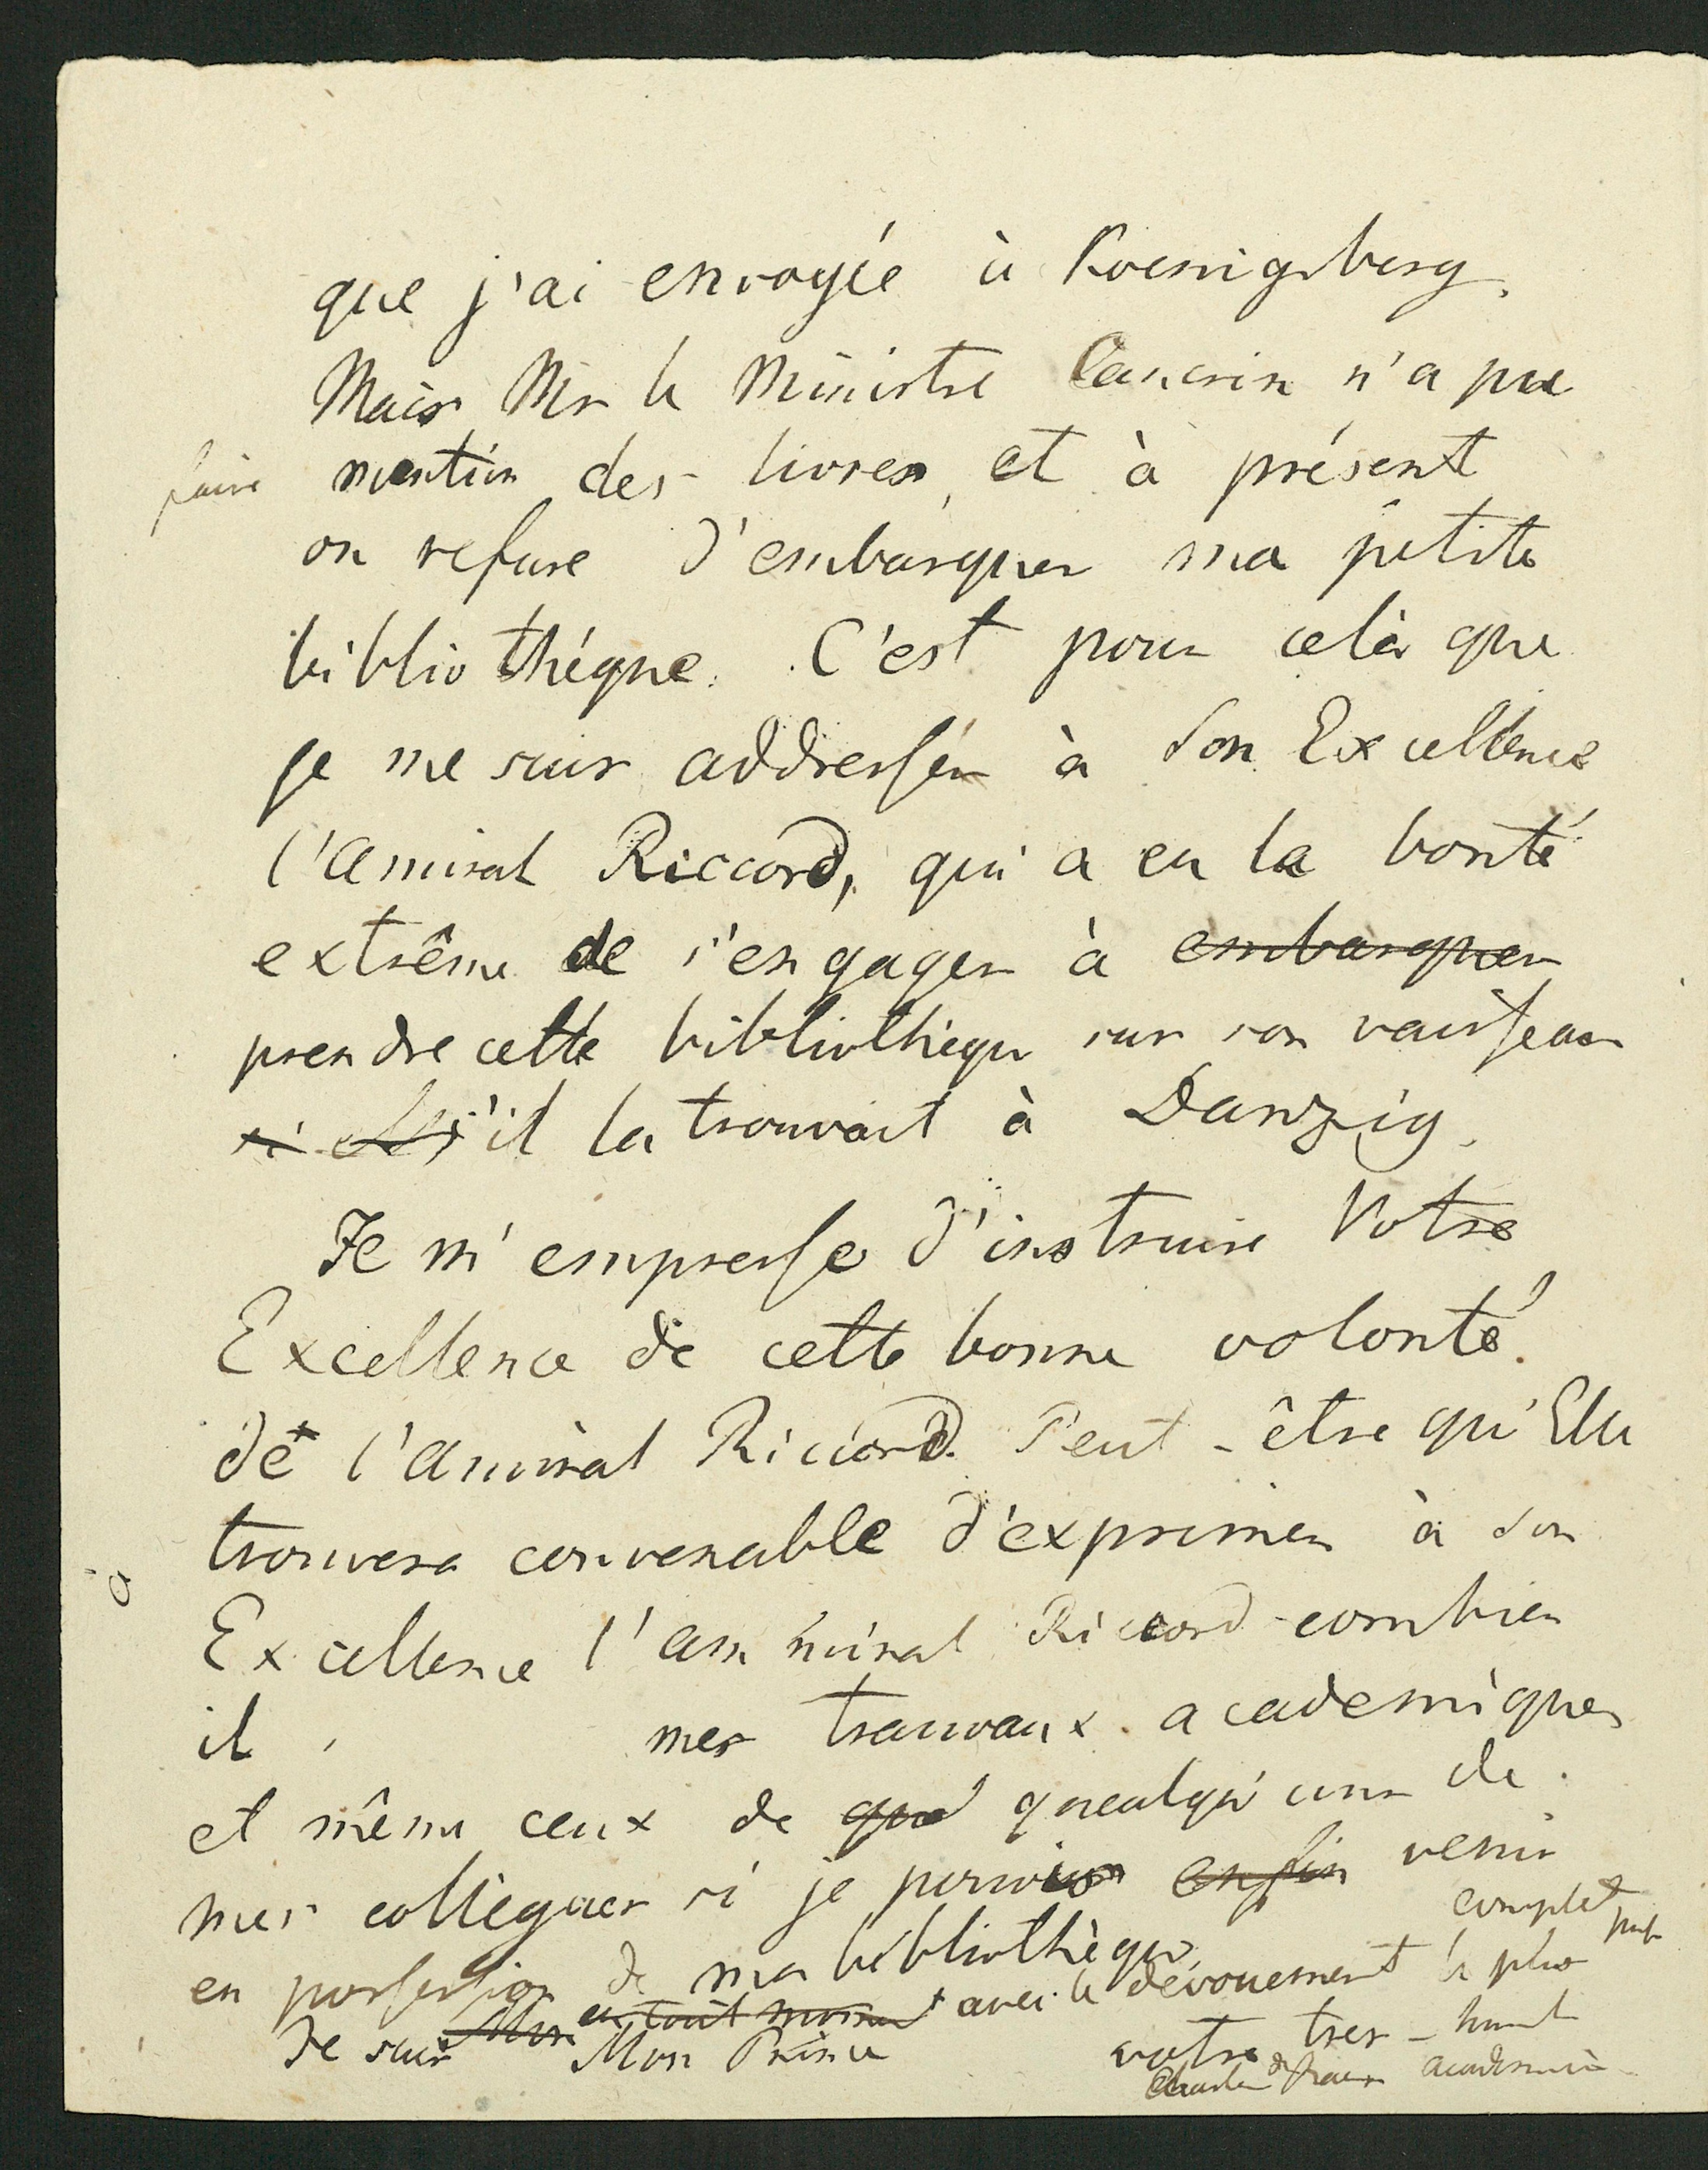 que j'ai envoyée à Koenigsberg.
Mais Mr le Ministre Cancrin n'a pu
faire mention des livres, et à présent
on refuse d'embarquer ma petite
bibliothéque. C'est pour celà que
je me suis addressée à Son Excellence
l'Amiral Riccord, qui a eu la bonté
extrême de s'engager à embarquer
prendre cette bibliothéque sur son vaisseau
si elle s'il la trouvait à Danzig.
Je m'empresse d'instruire Votre
Excellence de cette bonne volonté
de l'Amiral Riccord. Peut-être qu'Elle
trouvera convenable d'exprimer à Son
à
Excellence l'Ammiral Riccord combien
il mes travaux academiques
et même ceux de que quealqu'uns de
mes collègues si je puis enfin venir
en possession de ma bibliothèque
Je suis Mon en tout avec le dévouement le plus complet
Mon Prince votre tres-humb
Charles de Baer